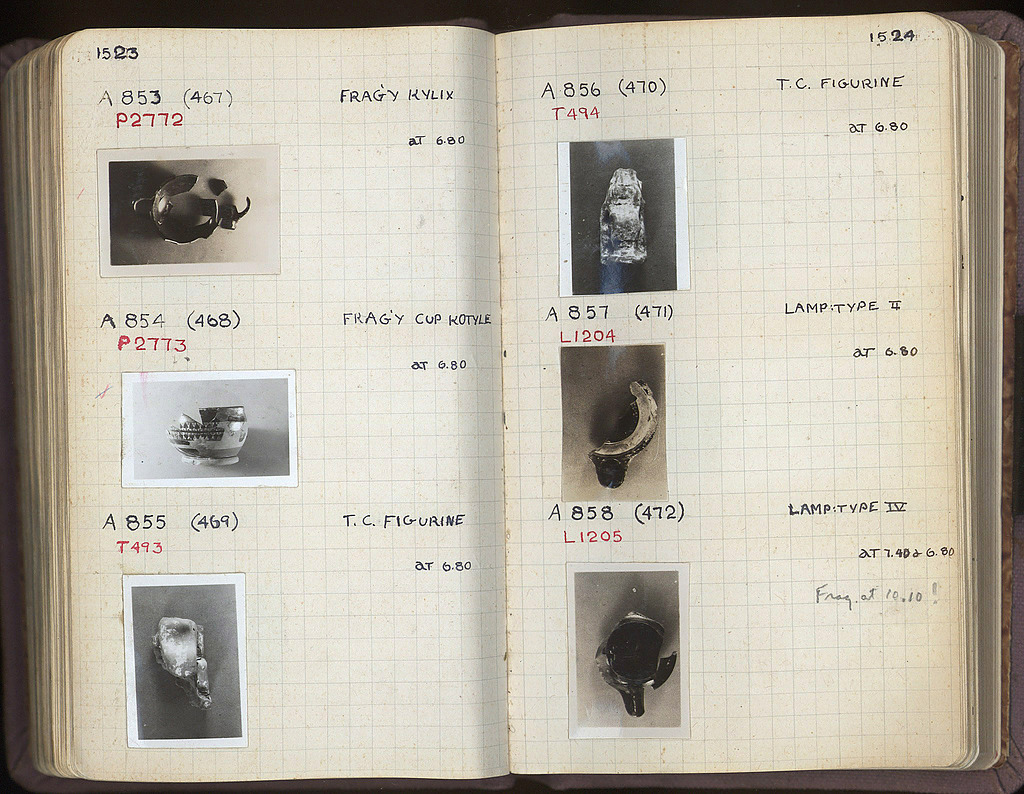 1523
A 853 (467) FRAG'Y KYLIX
P2772
at 6.80
A 854 (468) FRAG'Y CUP KOTYLE
P2773
at 6.80
A 855 (469) T.C. FIGURINE
T493
at 6.80
1524
A 856 (470) T.C. FIGURINE
T494
at 6.80
A 857 (471) LAMP: TYPE II
L1204
at 6.80
A 858 (472) LAMP: TYPE IV
L1205
at 7.40 & 6.80
Frag. at 10.10!